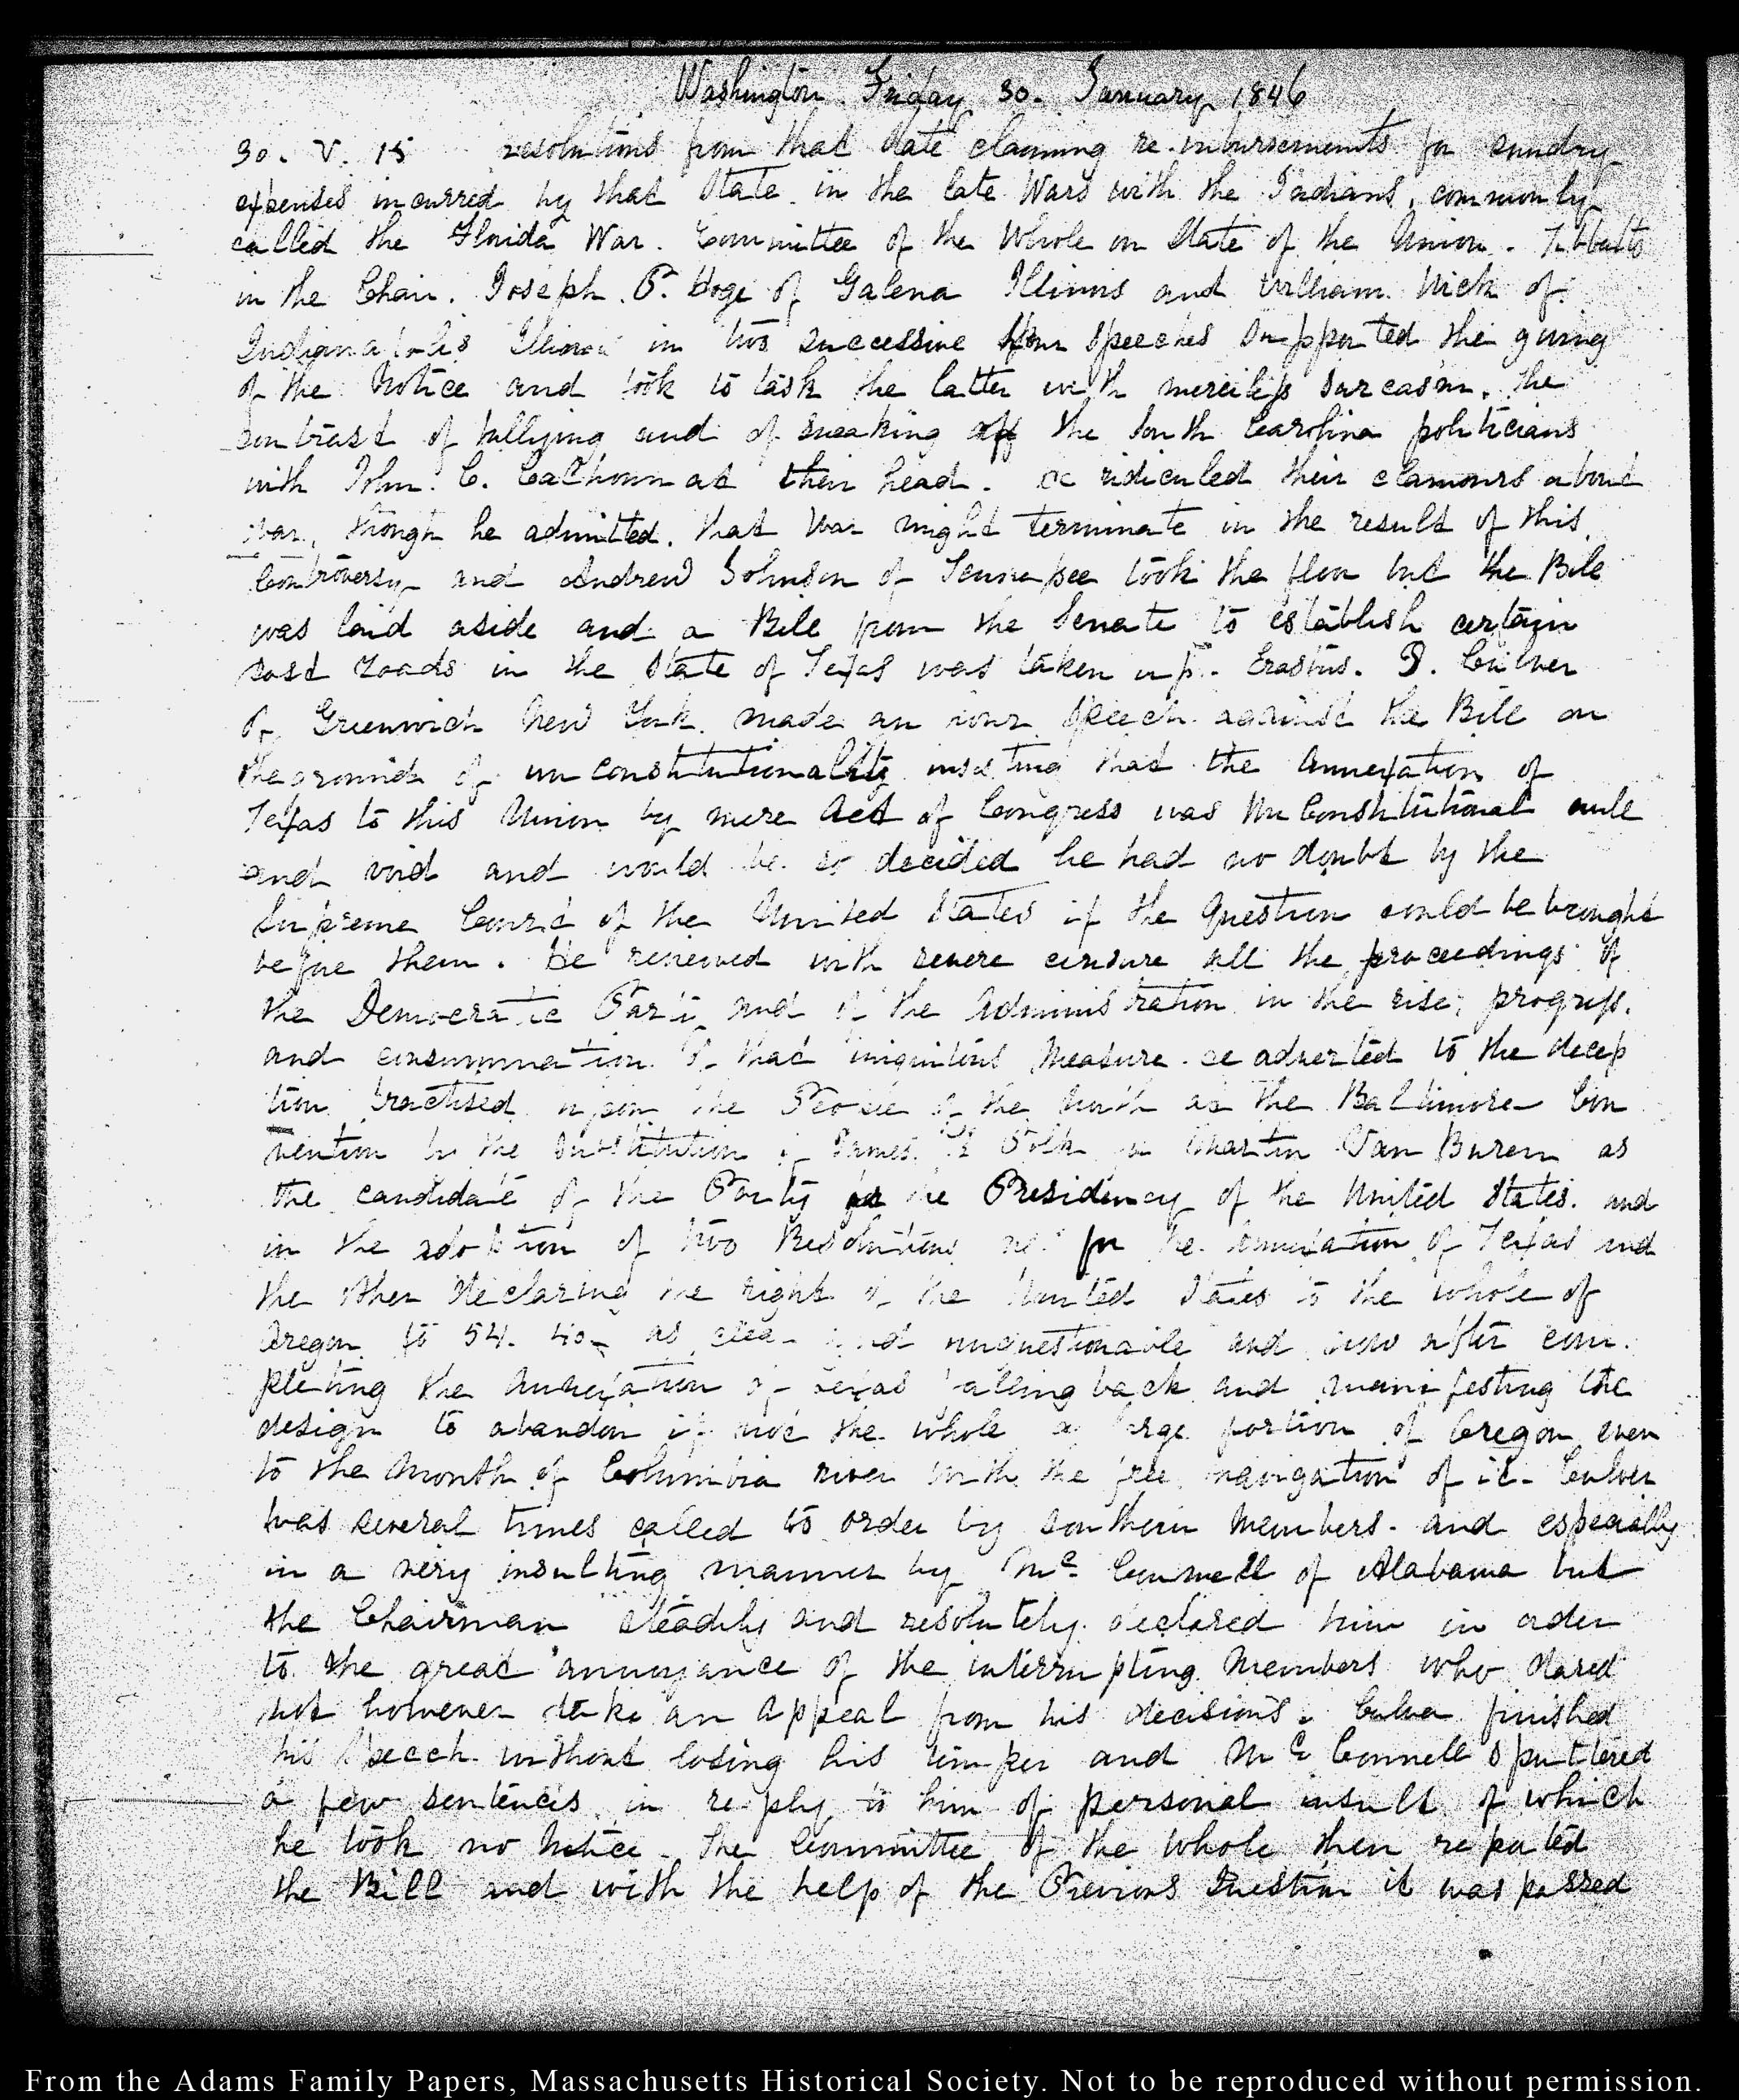 Washington Friday 30. January 1846
30. V. 15 resolutions from that State claiming re-imbursements for sundry
expenses incurred by that State in the late Wars with the Indians, commonly
called the Florida War. Committee of the Whole on State of the Union. Tibbatts
in the Chair. Joseph. P. Hoge of Galena Illinois and William Wick of
Indianapolis Illinois in two successive hour speeches supported the giving
of the Notice and took to task the latter with merciless sarcasm, the
contrast of bullying and of sneaking off the South Carolina politicians
with John. C. Calhoun at their head. He ridiculed their clamours about
war, though he admitted, that war might terminate in the result of this
Controversy and Andrew Johnson of Tennessee took the floor but the Bill
was laid aside and a Bill from the Senate to establish certain
post roads in the State of Texas was taken up. Erastus. D. Culver
of Greenwich New York made an hour speech against the Bill on
the ground of unconstitutionality insisting that the Annexation of
Texas to this Union by mere Act of Congress was UnConstitutional null
and void and would be so decided he had no doubt by the
Supreme Court of the United States if the Question could be brought
before them. He reviewed with severe censure all the proceedings of
the Democratic Party and of the Administration in the rise, progress,
and consummation of that iniquitous Measure. He adverted to the decep
tion practised upon the People of the North as the Baltimore Con
vention by the substitution of James. K. Polk for Martin Van Buren as
the candidate of the Party for the Presidency of the United States. and
in the adoption of two Resolutions one for the Annexation of Texas and
the other declaring the right of the United States to the whole of
Oregon to 54. 40. as clear and unquestionable and now after com.
pleting the Annexation of Texas falling back and manifesting the
design to abandon if not the whole a large portion of Oregon even
to the Mouth of Columbia river with the free navigation of it. Culver
was several times called to order by southern Members. and especially
in a very insulting manner by McConnell of Alabama but
the Chairman steadily and resolutely declared him in order
to the great annoyance of the interrupting Members who dared
not however take an appeal from his decisions. Culver finished
his speech without losing his temper and McConnell sputtered
a few sentences in reply to him of personal insult of which
he took no Notice. The Committee of the Whole then reported
the Bill and with the help of the Previous Question it was passed
From the Adams Family Papers, Massachusetts Historical Society. Not to be reproduced without permission.